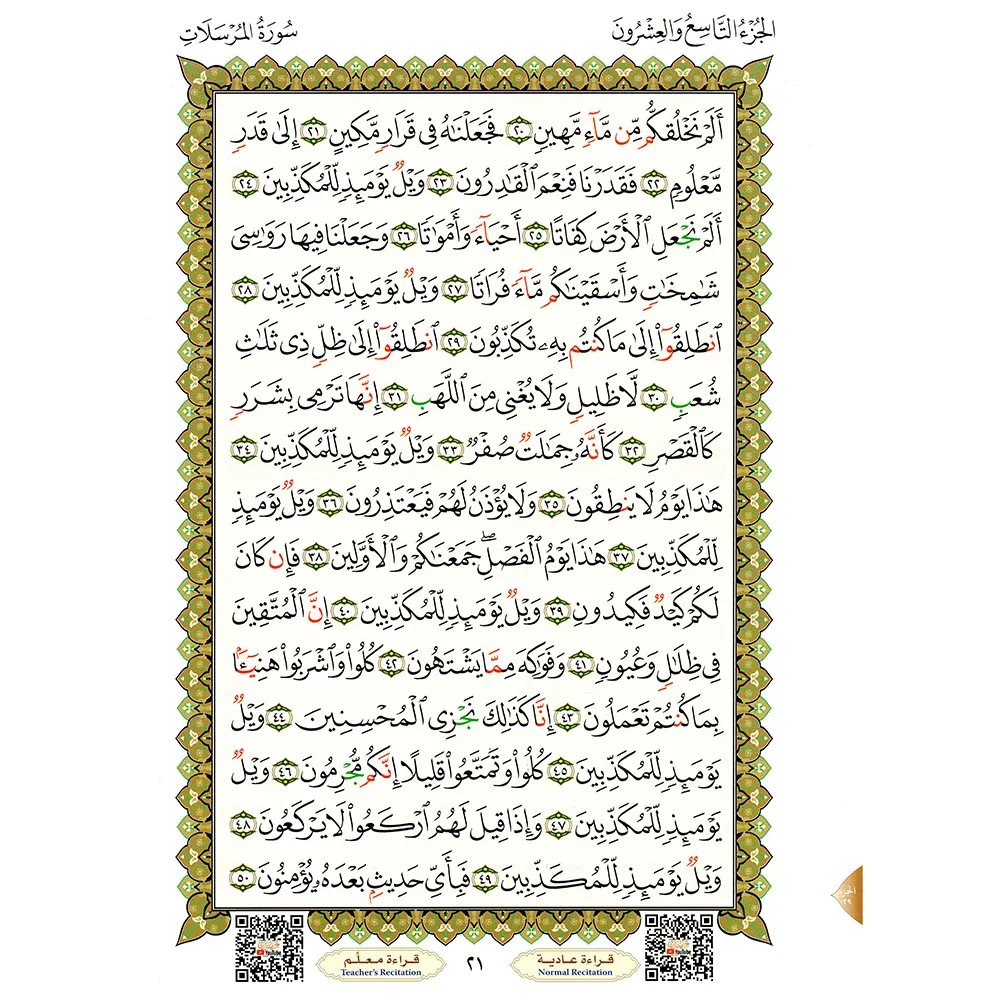 الجُزْءُ التَّاسِعُ وَالعِشْرُونَ
سُورَةُ المُرْسَلَاتِ
أَلَمْ نَخْلُقكُّم مِّن مَّآءٍ مَّهِينٍ ٢٠ فَجَعَلْنَٰهُ فِى قَرَارٍ مَّكِينٍ ٢١ إِلَىٰ قَدَرٍ
مَّعْلُومٍ ٢٢ فَقَدَرْنَا فَنِعْمَ ٱلْقَٰدِرُونَ ٢٣ وَيْلٌ يَوْمَئِذٍ لِّلْمُكَذِّبِينَ ٢٤
أَلَمْ نَجْعَلِ ٱلْأَرْضَ كِفَاتًا ٢٥ أَحْيَآءً وَأَمْوَٰتًا ٢٦ وَجَعَلْنَا فِيهَا رَوَٰسِىَ
شَٰمِخَٰتٍ وَأَسْقَيْنَٰكُم مَّآءً فُرَاتًا ٢٧ وَيْلٌ يَوْمَئِذٍ لِّلْمُكَذِّبِينَ ٢٨
ٱنطَلِقُوٓا۟ إِلَىٰ مَا كُنتُم بِهِۦ تُكَذِّبُونَ ٢٩ ٱنطَلِقُوٓا۟ إِلَىٰ ظِلٍّ ذِى ثَلَٰثِ
شُعَبٍ ٣٠ لَّا ظَلِيلٍ وَلَا يُغْنِى مِنَ ٱللَّهَبِ ٣١ إِنَّهَا تَرْمِى بِشَرَرٍ
كَٱلْقَصْرِ ٣٢ كَأَنَّهُۥ جِمَٰلَتٌ صُفْرٌ ٣٣ وَيْلٌ يَوْمَئِذٍ لِّلْمُكَذِّبِينَ ٣٤
هَٰذَا يَوْمُ لَا يَنطِقُونَ ٣٥ وَلَا يُؤْذَنُ لَهُمْ فَيَعْتَذِرُونَ ٣٦ وَيْلٌ يَوْمَئِذٍ
لِّلْمُكَذِّبِينَ ٣٧ هَٰذَا يَوْمُ ٱلْفَصْلِ ۖ جَمَعْنَٰكُمْ وَٱلْأَوَّلِينَ ٣٨ فَإِن كَانَ
لَكُمْ كَيْدٌ فَكِيدُونِ ٣٩ وَيْلٌ يَوْمَئِذٍ لِّلْمُكَذِّبِينَ ٤٠ إِنَّ ٱلْمُتَّقِينَ
فِى ظِلَٰلٍ وَعُيُونٍ ٤١ وَفَوَٰكِهَ مِمَّا يَشْتَهُونَ ٤٢ كُلُوا۟ وَٱشْرَبُوا۟ هَنِيٓـًٔا
بِمَا كُنتُمْ تَعْمَلُونَ ٤٣ إِنَّا كَذَٰلِكَ نَجْزِى ٱلْمُحْسِنِينَ ٤٤ وَيْلٌ
يَوْمَئِذٍ لِّلْمُكَذِّبِينَ ٤٥ كُلُوا۟ وَتَمَتَّعُوا۟ قَلِيلًا إِنَّكُم مُّجْرِمُونَ ٤٦ وَيْلٌ
يَوْمَئِذٍ لِّلْمُكَذِّبِينَ ٤٧ وَإِذَا قِيلَ لَهُمُ ٱرْكَعُوا۟ لَا يَرْكَعُونَ ٤٨
وَيْلٌ يَوْمَئِذٍ لِّلْمُكَذِّبِينَ ٤٩ فَبِأَىِّ حَدِيثٍۭ بَعْدَهُۥ يُؤْمِنُونَ ٥٠
الجزء
٢٩
قراءة عادية
Normal Recitation
٢١
قراءة معلّم
Teacher's Recitation